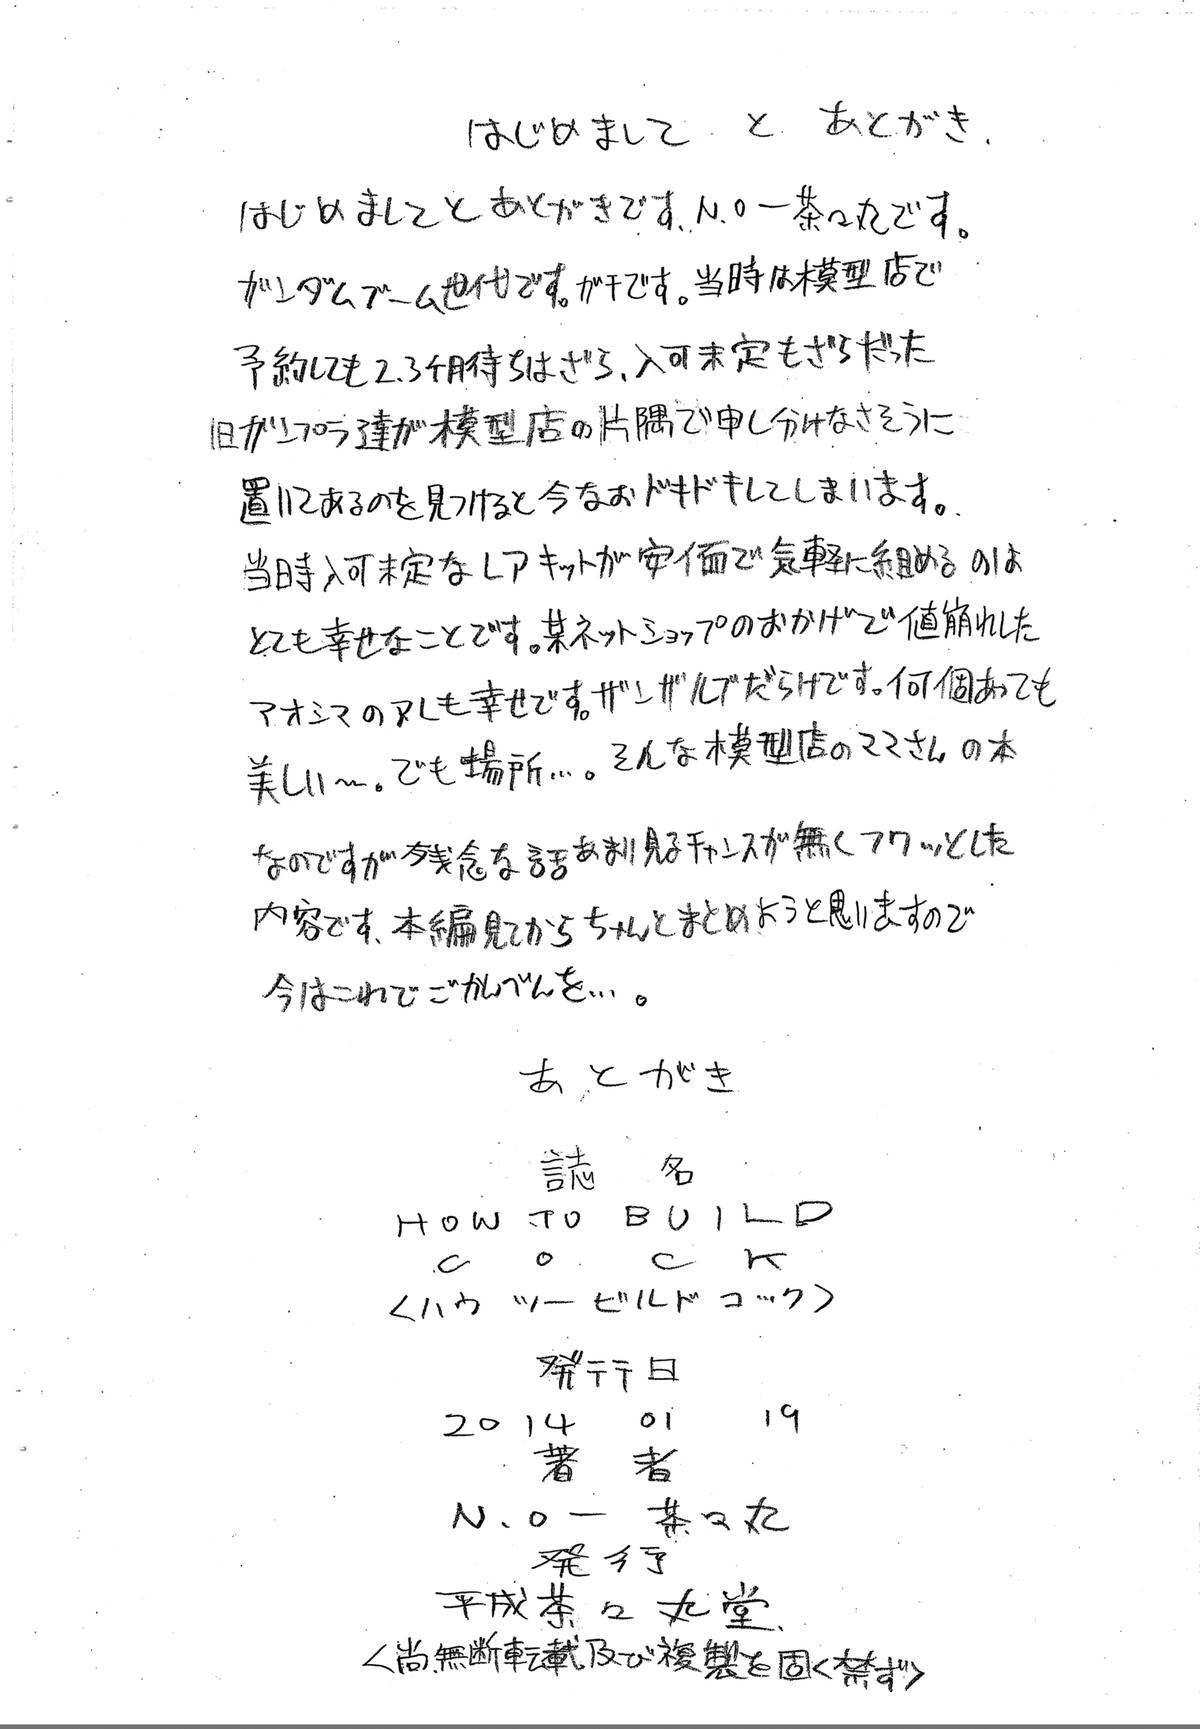 はじめまして と あとがき.
はじめましてとあとがきです、N.O－茶々丸です。
ガンダムブーム世代です。ガチです。当時は模型店で
予約しても2.3ヶ月待ちはざら、入可未定もざらだった
旧ガンプラ達が模型店の片隅で申し分けなさそうに
置いてあるのを見つけると今なおドキドキしてしまいます。
当時入可未定なレアキットが安価で気軽に組めるのは
とても幸せなことです。某ネットショップのおかげで値崩れした
アオシマのアレも幸せです。ザンザルブだらけです。何個あっても
美しい～。でも場所…。そんな模型店のママさんの本
なのですが残念な話あまり見るチャンスが無くフワッとした
内容です、本編見てからちゃんとまとめようと思いますので
今はこれでごかんべんを…。
あとがき
誌名
HOW TO BUILD
COCK
<ハウツービルドコック>
発行日
2014 01 19
著者
N.O－茶々丸
発行
平成茶々丸堂.
<尚、無断転載及び複製を固く禁ず>